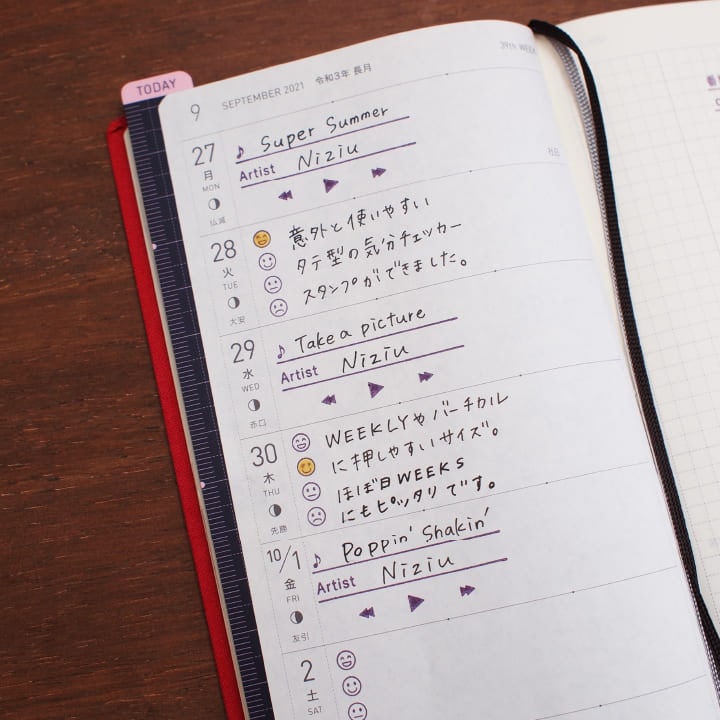 TODAY
9 SEPTEMBER 2021 令和3年 長月
39th WEEK
27
月
MON
仏滅
Super Summer
Artist Niziu
28
火
TUE
大安
意外と使いやすい
タテ型の気分チェッカー
スタンプができました。
29
水
WED
赤口
Take a picture
Artist Niziu
30
木
THU
先勝
WEEKLYやバーチカル
に押しやすいサイズ。
ほぼ日WEEKS
にもピッタリです。
10/1
金
FRI
友引
Poppin' Shakin'
Artist Niziu
2
土
SAT